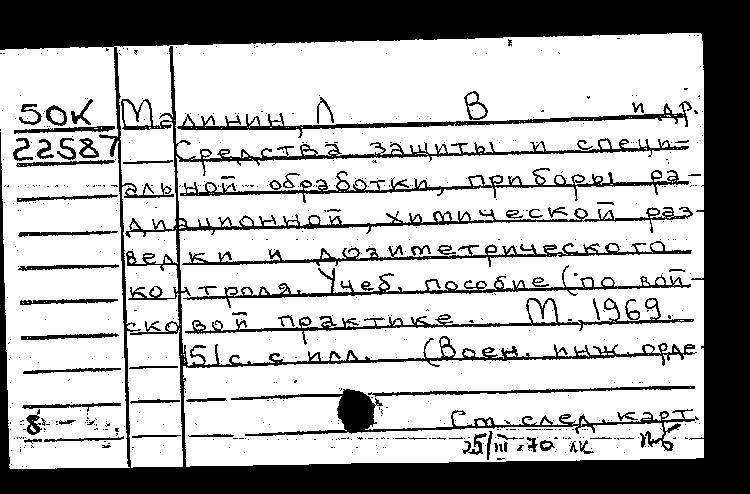 50К Малинин, Л В. и др.
22587 Средства защиты и специ=
альной обработки, приборы ра-
диационной, химической раз-
ведки и дозиметрического
контроля. Учеб. пособие (по вой-
сковой практике. М., 1969.
151с. с илл. (Воен. инж. орде-
8 - Ст. след. карт
25/III-70 лк